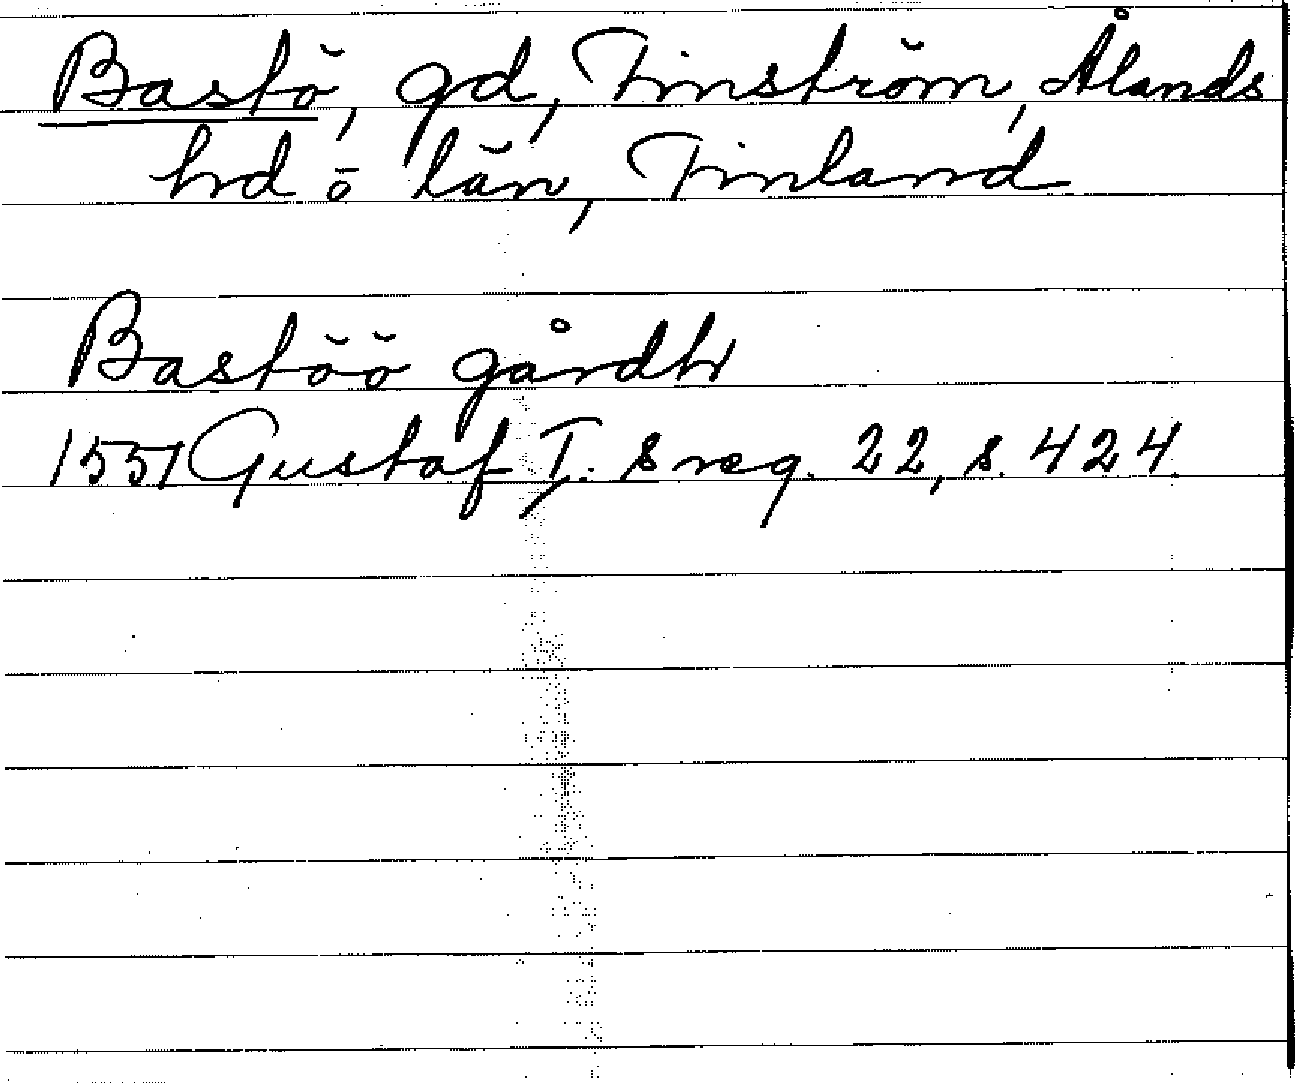 Bastö, gd, Finström, Ålands
hd o län, Finland
Bastöö gårdh
1551 Gustaf I:s reg. 22, s. 424.